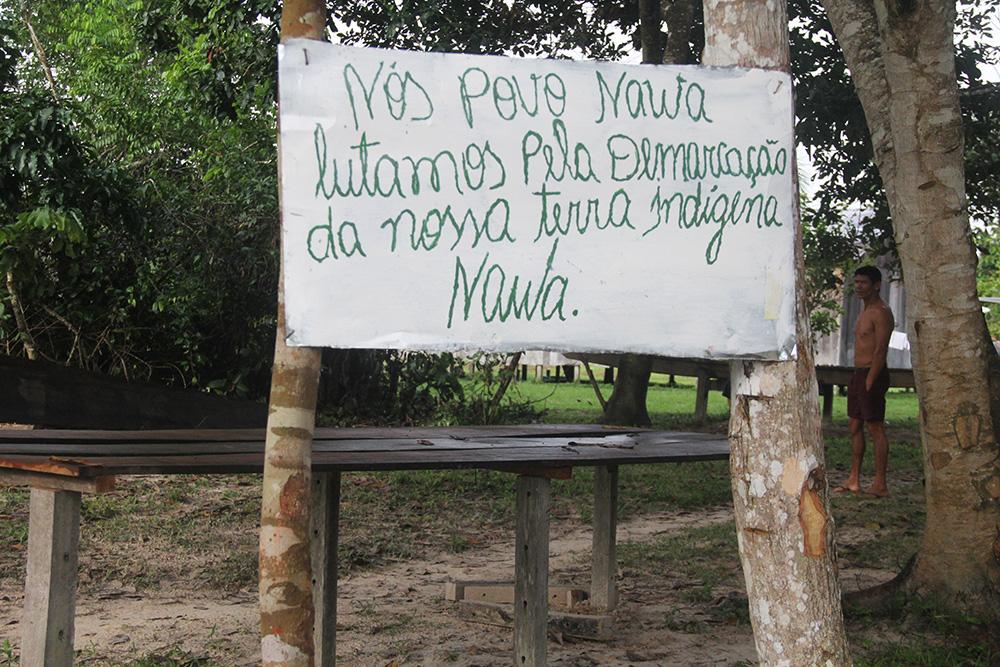 Nós Povo Nawa
lutamos Pela Demarcação
da nossa terra indígena
Nawa.